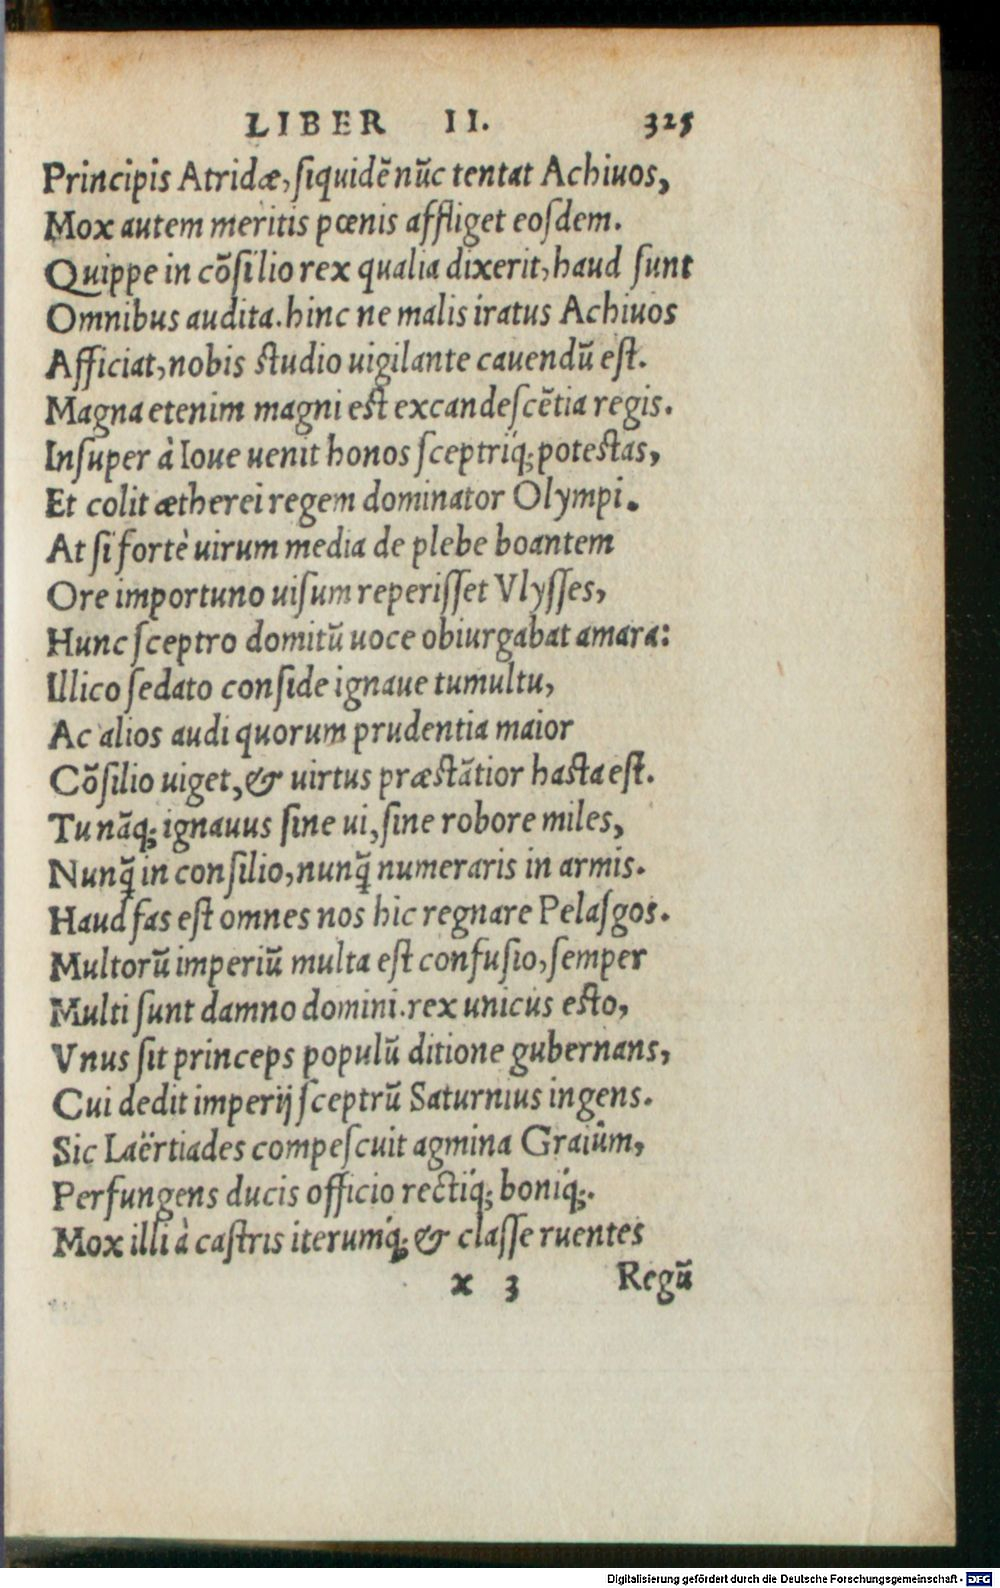 LIBER II. 325
Principis Atridæ, ſiquidē nūc tentat Achiuos,
Mox autem meritis pœnis affliget eoſdem.
Quippe in cōſilio rex qualia dixerit, haud ſunt
Omnibus audita. hinc ne malis iratus Achiuos
Afficiat, nobis ſtudio uigilante cauendū eſt.
Magna etenim magni eſt excandeſcētia regis.
Inſuper à Ioue uenit honos ſceptriq́; poteſtas,
Et colit ætherei regem dominator Olympi.
At ſi fortè uirum media de plebe boantem
Ore importuno uiſum reperiſſet Vlyſſes,
Hunc ſceptro domitū uoce obiurgabat amara:
Illico ſedato conſide ignaue tumultu,
Ac alios audi quorum prudentia maior
Cōſilio uiget, & uirtus præſtātior haſta eſt.
Tu nāq; ignauus ſine ui, ſine robore miles,
Nunq̄ in conſilio, nunq̄ numeraris in armis.
Haud fas eſt omnes nos hic regnare Pelaſgos.
Multorū imperiū multa eſt confuſio, ſemper
Multi ſunt damno domini. rex unicus eſto,
Vnus ſit princeps populū ditione gubernans,
Cui dedit imperij ſceptrū Saturnius ingens.
Sic Laërtiades compeſcuit agmina Graiûm,
Perfungens ducis officio rectiq́; boniq́;.
Mox illi à caſtris iterumq́; & claſſe ruentes
x 3 Regū
Digitalisierung gefördert durch die Deutsche Forschungsgemeinschaft - DFG